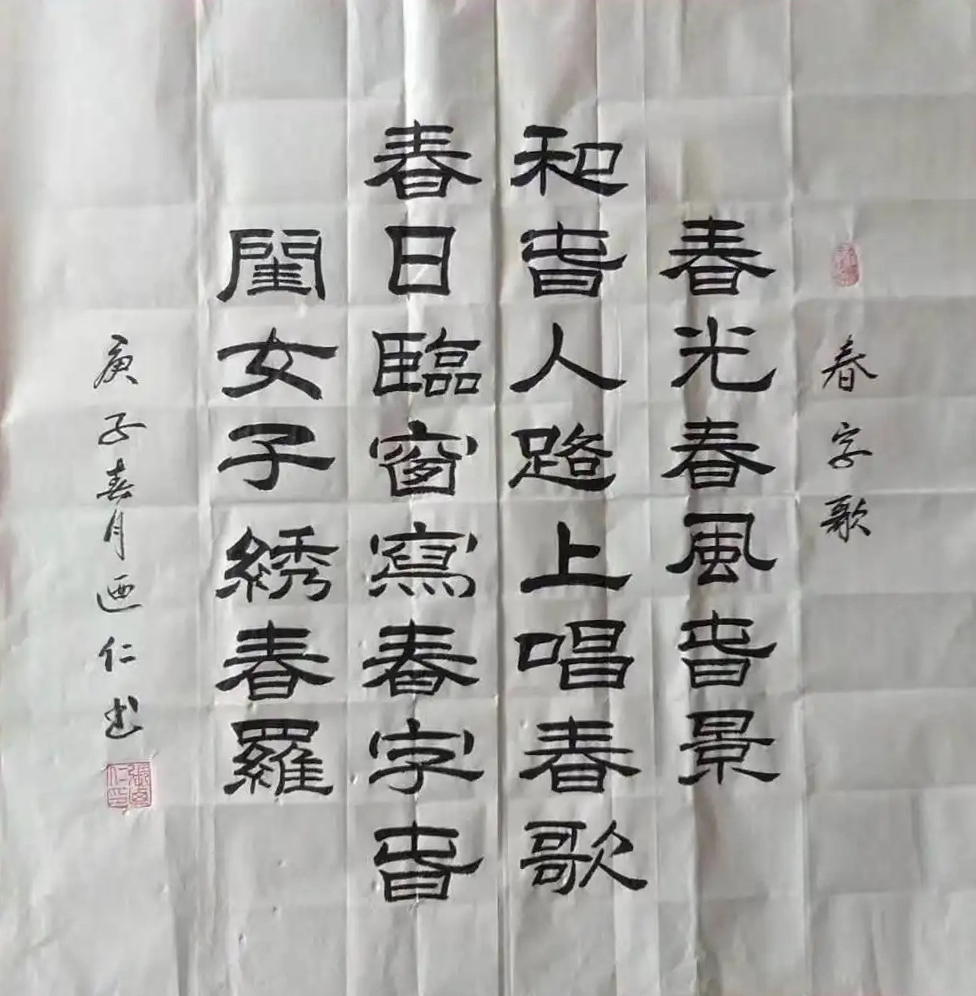 春字歌
春光春風旾景
和旾人路上唱春歌
春日臨窗寫春字旾
閨女子綉春羅
庚子春月迺仁书